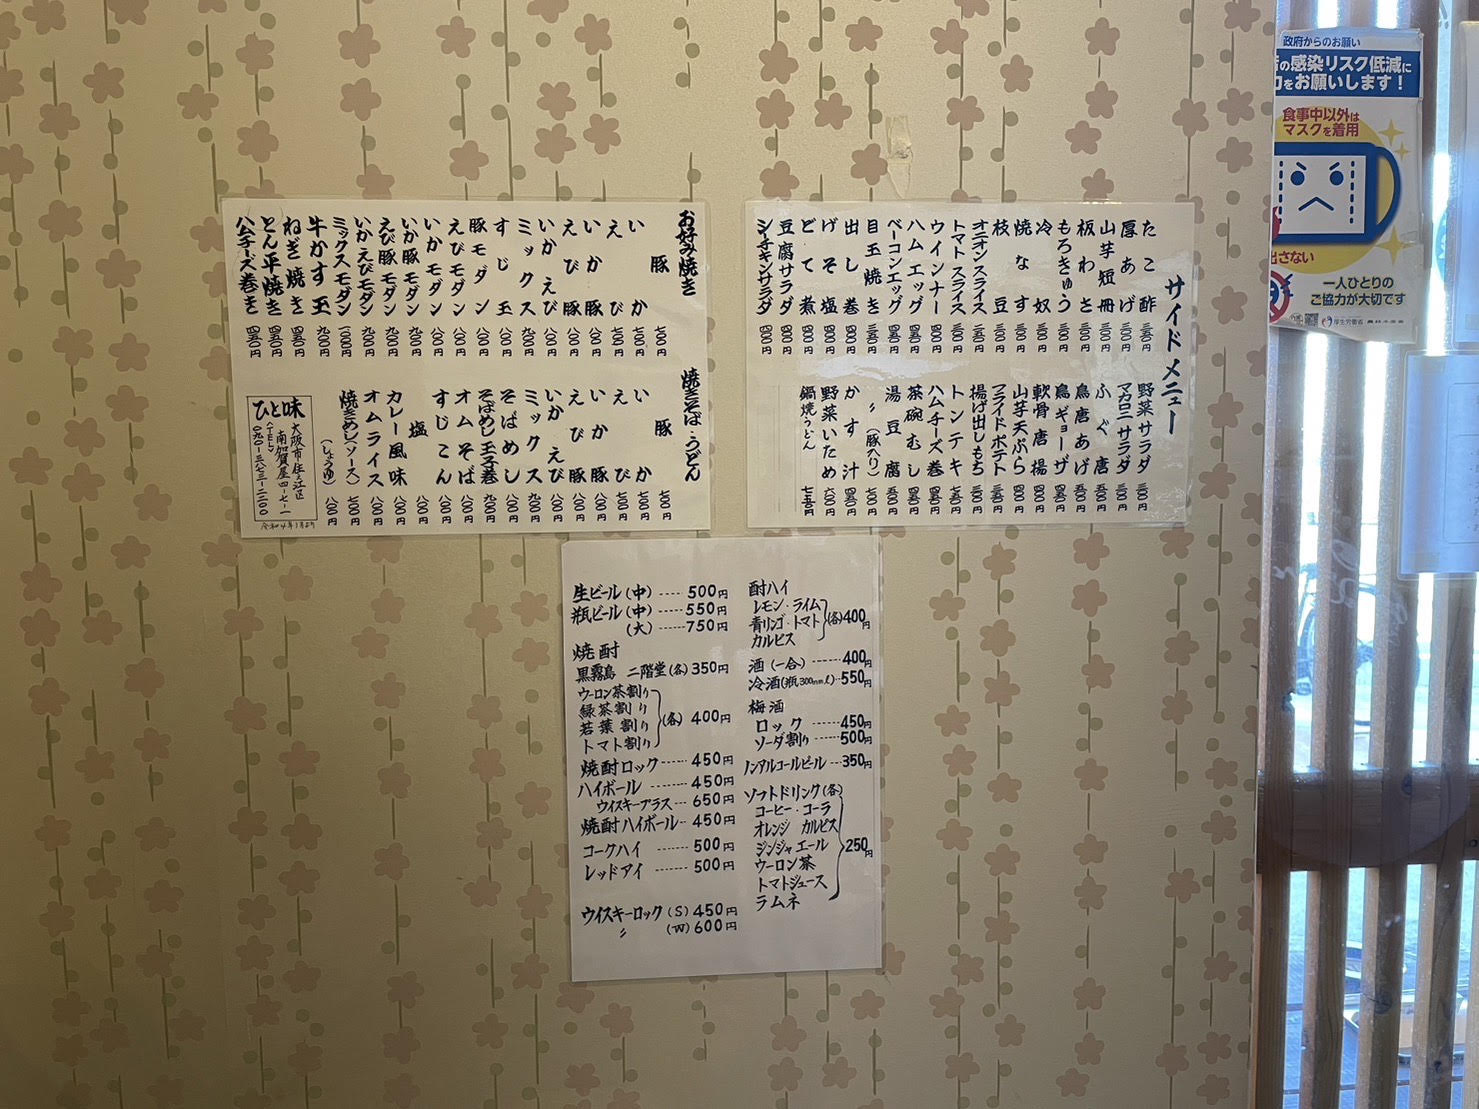 お好み焼き
豚 七〇〇円
いか 七〇〇円
えび 七〇〇円
いか豚 八〇〇円
えび豚 八〇〇円
いかえび 八〇〇円
ミックス 九〇〇円
すじ玉 八〇〇円
豚モダン 八〇〇円
えびモダン 八〇〇円
いかモダン 八〇〇円
いか豚モダン 九〇〇円
えび豚モダン 九〇〇円
いかえびモダン 九〇〇円
ミックスモダン 一〇〇〇円
牛かす玉 九〇〇円
ねぎ焼き
とん平焼き
ハムチーズ巻き
焼きそば・うどん
豚 七〇〇円
いか 七〇〇円
えび 七〇〇円
いか豚 八〇〇円
えび豚 八〇〇円
いかえび 八〇〇円
ミックス 九〇〇円
そばめし 八〇〇円
そばめし玉子巻 九〇〇円
オムそば 八〇〇円
すじこん 八〇〇円
塩 八〇〇円
カレー風味 八〇〇円
オムライス 八〇〇円
焼きめし(ソース) 八〇〇円
(しょうゆ) 八〇〇円
ひと味
大阪市住之江区
南加賀屋四-七-一
(TEL)
サイドメニュー
たこ酢
厚あげ
山芋短冊
板わさ
もろきゅう
冷奴
焼なす
枝豆
トマトスライス
オニオンスライス
ウインナー
ハムエッグ
ベーコンエッグ
目玉焼き
出し巻
げそ塩
どて煮
豆腐サラダ
シーチキンサラダ
野菜サラダ
マカロニサラダ
ふぐ唐
鳥唐あげ
鳥ギョーザ
軟骨唐揚
山芋天ぷら
フライドポテト
揚げ出しもち
トンテキ
ハムチーズ巻
茶碗むし
湯豆腐
〃(豚入り)
かす汁
野菜いため
鍋焼うどん
生ビール(中)‥‥500円
瓶ビール(中)‥‥550円
(大)‥‥750円
焼酎
黒霧島 二階堂(各)350円
ウーロン茶割り
緑茶割り
若葉割り
トマト割り
(各)400円
焼酎ロック‥‥450円
ハイボール‥‥450円
ウイスキープラス‥650円
焼酎ハイボール‥450円
コークハイ 500円
レッドアイ‥‥500円
ウイスキーロック(S)450円
〃 (W)600円
酎ハイ
レモン・ライム
青リンゴ・トマト
カルピス
(各)400円
酒(一合)‥‥400円
冷酒(瓶300mmℓ)‥550円
梅酒
ロック‥‥450円
ソーダ割り‥‥500円
ノンアルコールビール‥350円
ソフトドリンク(各)
コーヒー・コーラ
オレンジ カルピス
ジンジャエール
ウーロン茶
トマトジュース
ラムネ
250円
政府からのお願い
の感染リスク低減に
をお願いします!
食事中以外は
マスクを着用
出さない
一人ひとりの
ご協力が大切です
厚生労働省